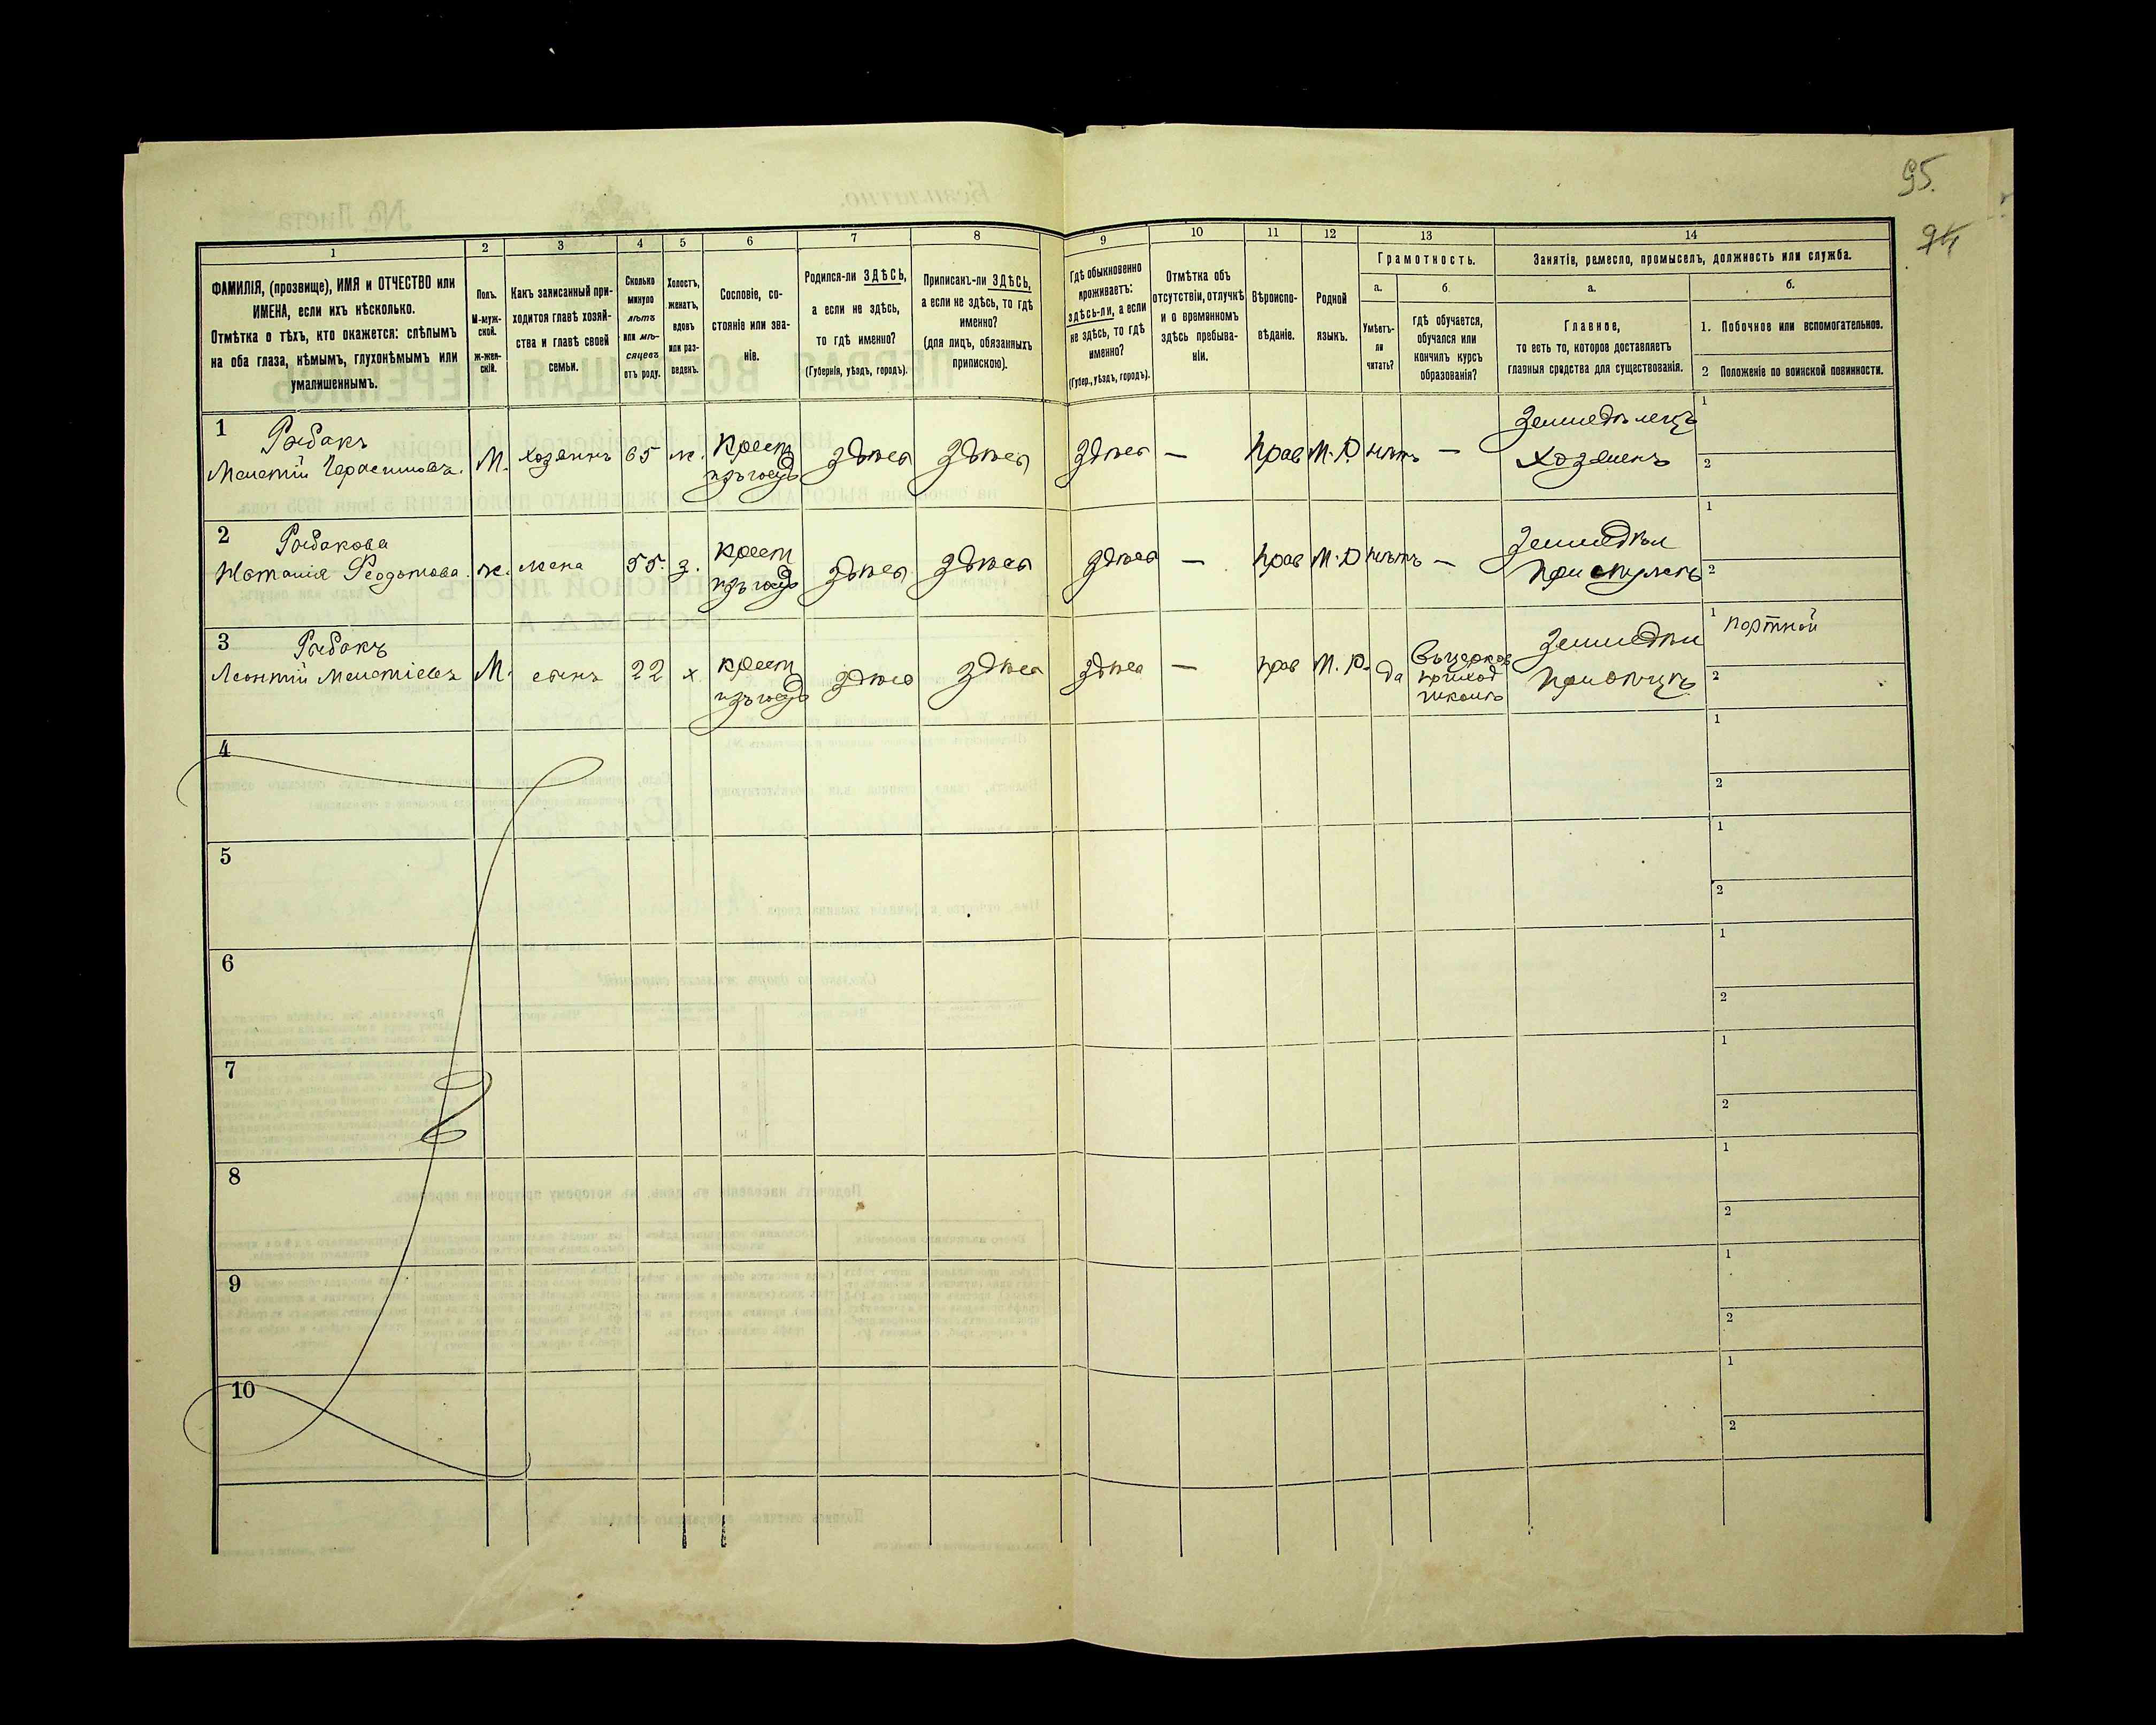 95.
94
1
2
3
4
5
6
7
8
9
10
11
12
13
14
ФАМИЛІЯ, (прозвище), ИМЯ и ОТЧЕСТВО или
ИМЕНА, если ихъ нѣсколько.
Отмѣтка о тѣхъ, кто окажется: слѣпымъ
на оба глаза, нѣмымъ, глухонѣмымъ или
умалишеннымъ.
Полъ.
М-муж-
ской.
ж-жен-
скій.
Какъ записанный при-
ходится главѣ хозяй-
ства и главѣ своей
семьи.
Сколько
минуло
лѣтъ
или мѣ-
сяцевъ
отъ роду.
Холостъ,
женатъ,
вдовъ
или раз-
веденъ.
Сословіе, со-
стояніе или зва-
ніе.
Родился-ли ЗДѢСЬ,
а если не здѣсь,
то гдѣ именно?
(Губернія, уѣздъ, городъ).
Приписанъ-ли ЗДѢСЬ,
а если не здѣсь, то гдѣ
именно?
(для лицъ, обязанныхъ
припискою).
Гдѣ обыкновенно
проживаетъ:
здѣсь-ли, а если
не здѣсь, то гдѣ
именно?
(Губер., уѣздъ, городъ).
Отмѣтка объ
отсутствіи, отлучкѣ
и о временномъ
здѣсь пребыва-
ніи.
Вѣроиспо-
вѣданіе.
Родной
языкъ.
Грамотность.
а.
Умѣетъ-
ли
читать?
б.
гдѣ обучается,
обучался или
кончилъ курсъ
образованія?
Занятія, ремесло, промыселъ, должность или служба.
а.
Главное,
то есть то, которое доставляетъ
главныя средства для существованія.
б.
1. Побочное или вспомогательное.
2 Положеніе по воинской повинности.
1
Рыбакъ
Мелетій Герасимовъ.
М.
хозяинъ
65
ж.
Крест
изъ госуд
здѣсь
здѣсь
здѣсь
—
Прав
М. Р.
нѣтъ
—
Земледѣлецъ
Хозяинъ
1
2
2
Рыбакова
Наталія Ѳеодотова.
ж.
жена
55.
з.
Крест
изъ госуд
здѣсь
здѣсь
здѣсь
—
Прав
М. Р
нѣтъ
—
Земледѣл
При мужѣ
1
2
3
Рыбакъ
Леонтій Мелетіевъ
М.
сынъ
22
х
крест
изъ госуд
здѣсь
здѣсь
здѣсь
—
прав
М. Р.
да
Въ церков
приход
школѣ
Земледѣл
При отцѣ
1 Портной
2
4
1
2
5
1
2
6
1
2
7
1
2
8
1
2
9
1
2
10
1
2